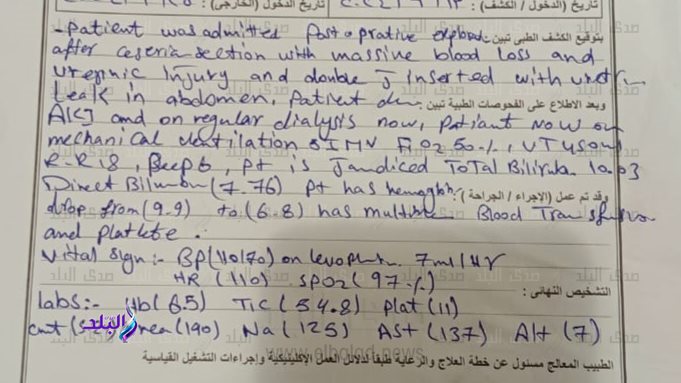 تاريخ (الدخول / الكشف) : تاريخ (الدخول/ الخارجى) :
بتوقيع الكشف الطبى تبين :
- patient was admitted Post oprative
after ceseria section with massive blood loss and
Injury and double J inserted with
Leak in abdomen, patient
وبعد الاطلاع على الفحوصات الطبية تبين :
AKI and on regular dialysis now, patiant now on
mechanical ventilation SIMV FiO2 50%, VT 450
R-R 18, Peep 6, pt is Jandiced Total 10.03
Direct (7.76) pt has
وقد تم عمل (الإجراء / الجراحة) :
drop from (9.9) to (6.8) has Blood
and
Vital sign :- BP (110/70) on 7ml/Hr
HR (110) SPO2 (97%)
التشخيص النهائى :
labs :- Hb (6.5) TLC (54.8) Plat (11)
(190) Na (125) AST (137) Alt (7)
الطبيب المعالج مسئول عن خطة العلاج والرعاية طبقاً لدلائل العمل الإكلينيكية وإجراءات التشغيل القياسية
صدى البلد
www.elbalad.news